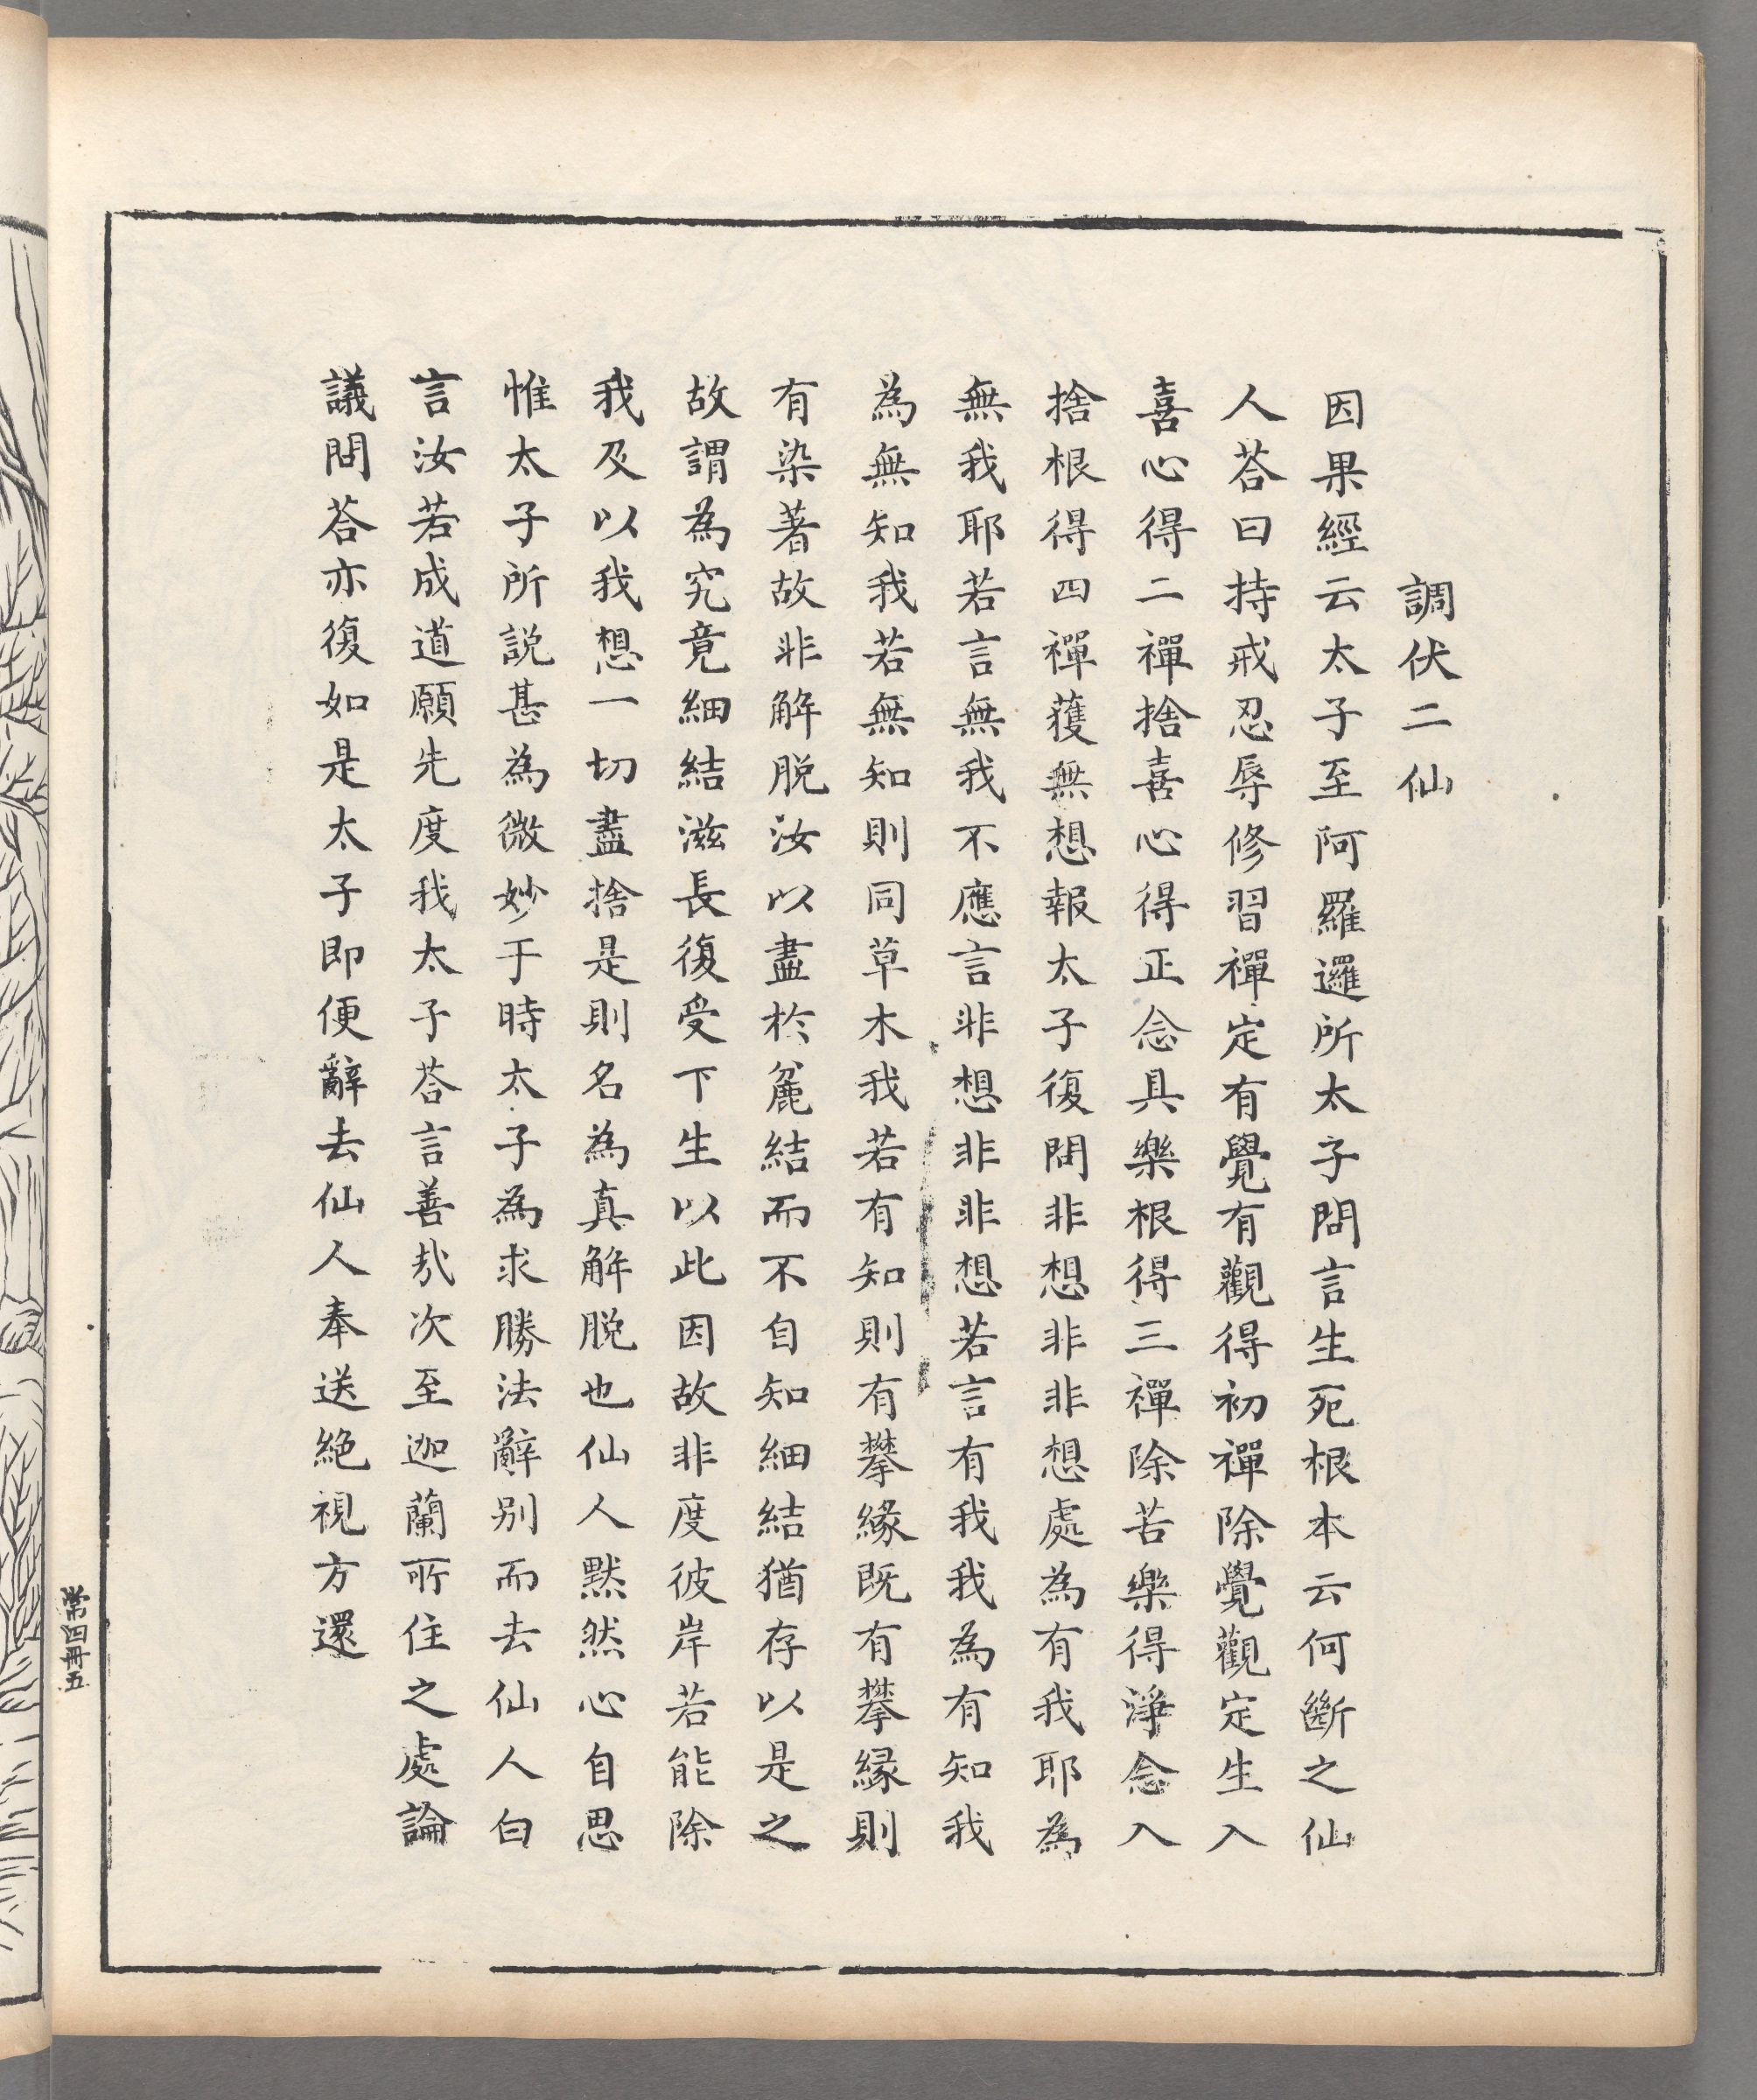 調伏二仙
因果經云太子至阿羅邏所太子問言生死根本云何斷之仙
人荅曰持戒忍辱修習禪定有覺有觀得初禪除覺觀定生入
喜心得二禪捨喜心得正念具樂根得三禪除苦樂得淨念入
捨根得四禪獲無想報太子復問非想非非想處為有我耶為
無我耶若言無我不應言非想非非想若言有我我為有知我
為無知我若無知則同草木我若有知則有攀緣既有攀緣則
有染著故非解脫汝以盡於麁結而不自知細結猶存以是之
故謂為究竟細結滋長復受下生以此因故非度彼岸若能除
我及以我想一切盡捨是則名為真解脫也仙人默然心自思
惟太子所説甚為微妙于時太子為求勝法辭別而去仙人白
言汝若成道願先度我太子荅言善哉次至迦蘭所住之處論
議問荅亦復如是太子即便辭去仙人奉送絕視方還
常四冊五